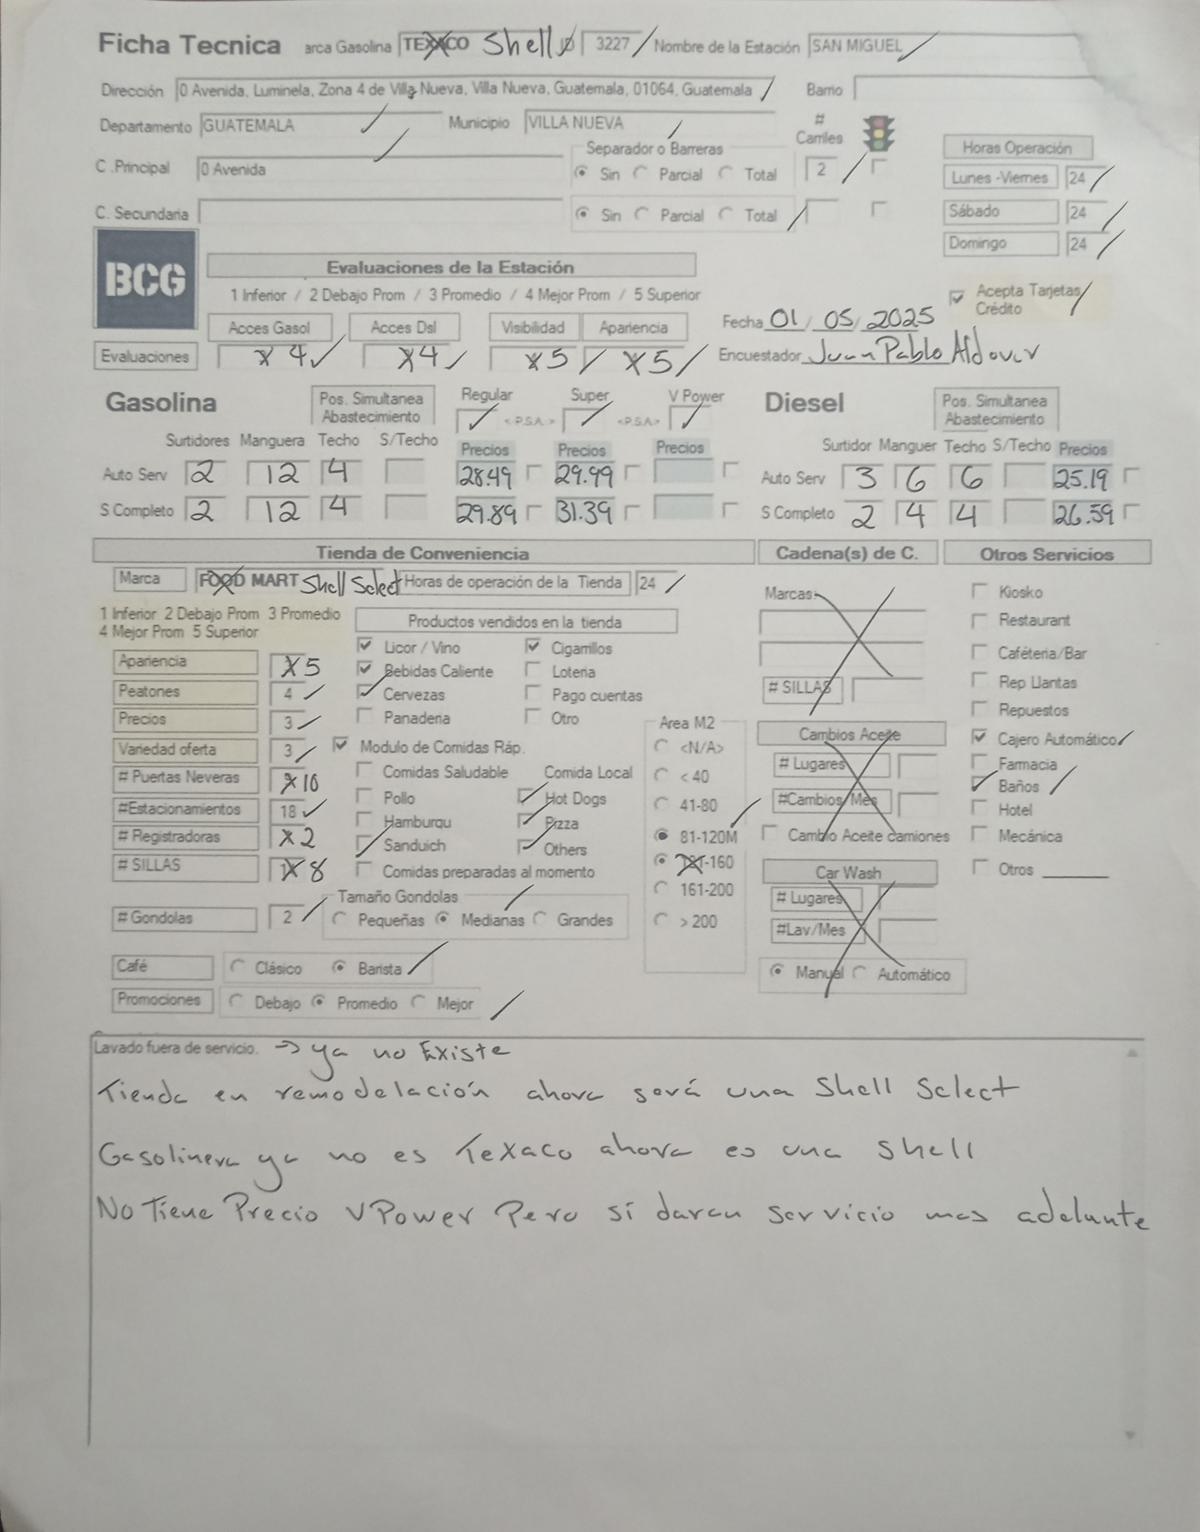 Ficha Tecnica arca Gasolina TEXACO Shell ID 3227 Nombre de la Estación SAN MIGUEL
Dirección 0 Avenida, Luminela, Zona 4 de Villa Nueva, Villa Nueva, Guatemala, 01064, Guatemala Barrio
Departamento GUATEMALA Municipio VILLA NUEVA # Carriles
C .Principal 0 Avenida Separador o Barreras Sin Parcial Total 2
Horas Operación
Lunes -Viernes 24
C. Secundaria Sin Parcial Total
Sábado 24
Domingo 24
BCG
Evaluaciones de la Estación
1 Inferior / 2 Debajo Prom / 3 Promedio / 4 Mejor Prom / 5 Superior
Acepta Tarjetas Crédito
Acces Gasol Acces Dsl Visibilidad Apariencia Fecha 01 / 05 / 2025
Evaluaciones 4 4 5 5 Encuestador Juan Pablo
Gasolina Pos. Simultanea Abastecimiento Regular <P.S.A> Super <P.S.A> V Power Diesel Pos. Simultanea Abastecimiento
Surtidores Manguera Techo S/Techo Precios Precios Precios Surtidor Manguer Techo S/Techo Precios
Auto Serv 2 12 4 28.49 29.99 Auto Serv 3 6 6 25.19
S Completo 2 12 4 29.89 31.39 S Completo 2 4 4 26.59
Tienda de Conveniencia Cadena(s) de C. Otros Servicios
Marca FOOD MART Shell Select Horas de operación de la Tienda 24
Marcas: Kiosko
1 Inferior 2 Debajo Prom 3 Promedio
4 Mejor Prom 5 Superior
Productos vendidos en la tienda
Restaurant
Apariencia 5 Licor / Vino Cigarrillos Caféteria/Bar
Peatones 4 Bebidas Caliente Loteria
Cervezas Pago cuentas # SILLAS Rep Llantas
Precios 3 Panaderia Otro Area M2 Repuestos
Variedad oferta 3 Modulo de Comidas Ráp. <N/A> Cambios Aceite Cajero Automático
# Puertas Neveras 10 Comidas Saludable Comida Local < 40 # Lugares Farmacia
#Estacionamientos 18 Pollo Hot Dogs 41-80 #Cambios/Mes Baños
Hamburqu Pizza Hotel
# Registradoras 2 Sanduich Others 81-120M Cambio Aceite camiones Mecánica
# SILLAS 8 Comidas preparadas al momento 121-160 Car Wash Otros
Tamaño Gondolas 161-200 # Lugares
# Gondolas 2 Pequeñas Medianas Grandes > 200 #Lav/Mes
Café Clásico Barista Manual Automático
Promociones Debajo Promedio Mejor
Lavado fuera de servicio. → ya no Existe
Tienda en remodelación ahora será una Shell Select
Gasolinera ya no es Texaco ahora es una Shell
No Tiene Precio VPower Pero sí daran servicio mas adelante